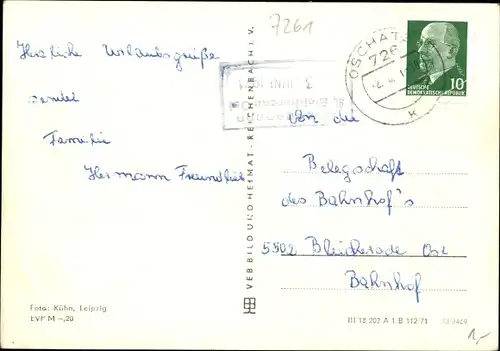 7261
Herzliche Urlaubsgrüße
sendet
Familie
Hermann
An die
Belegschaft
des Bahnhof's
5502 Bleicherode Ost
Bahnhof
OSCHATZ
726
K
DEUTSCHE
DEMOKRATISCHE REPUBLIK
10
3. JUNI
VEB BILD UND HEIMAT · REICHENBACH I. V.
Foto: Kühn, Leipzig
EVP M -,20
III 18 203 A 1. B 112 71
1,-